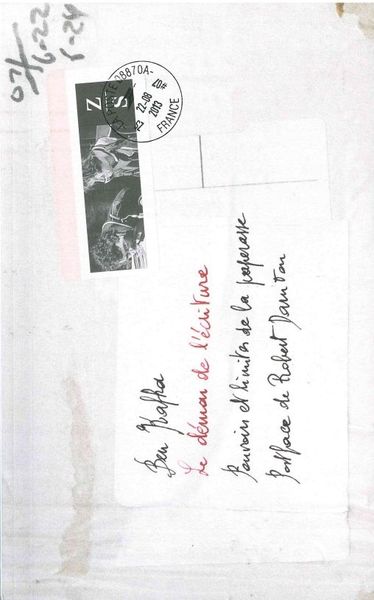 Ben Kafka
Le démon de l'écriture
Pouvoirs et limites de la paperasse
Postface de Robert Darnton
Z
S
LA POSTE 08870A-
22-08
2013
FRANCE
07/
6-22